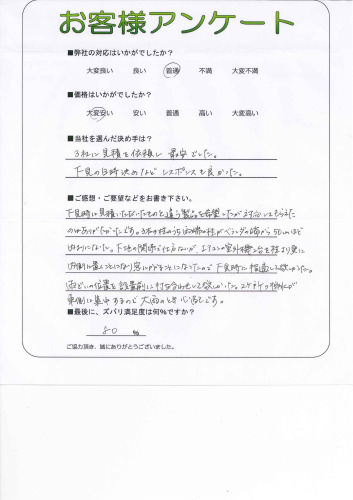 お客様アンケート
■弊社の対応はいかがでしたか？
大変良い 良い 普通 不満 大変不満
■価格はいかがでしたか？
大変安い 安い 普通 高い 大変高い
■当社を選んだ決め手は？
3社に見積を依頼し最安でした。
下見の日時決めなど レスポンスも良かった。
■ご感想・ご要望などをお書き下さい。
下見時に見積いただいたものと違う製品を希望したが対応してもらえた
のはありがたかったです。3本の柱のうち両端の柱がベランダの端から50cmほど
内よりになった。下地の関係で仕方ないが、エアコンの室外機2台を柱より更に
内側に置くことになり窓にかかることになったので下見時に指摘して欲しかった。
雨どいの位置を設置前に打ち合わせして欲しかった。
東側に集中するので大雨のとき心配です。
■最後に、ズバリ満足度は何％ですか？
80 ％
ご協力頂き、誠にありがとうございました。